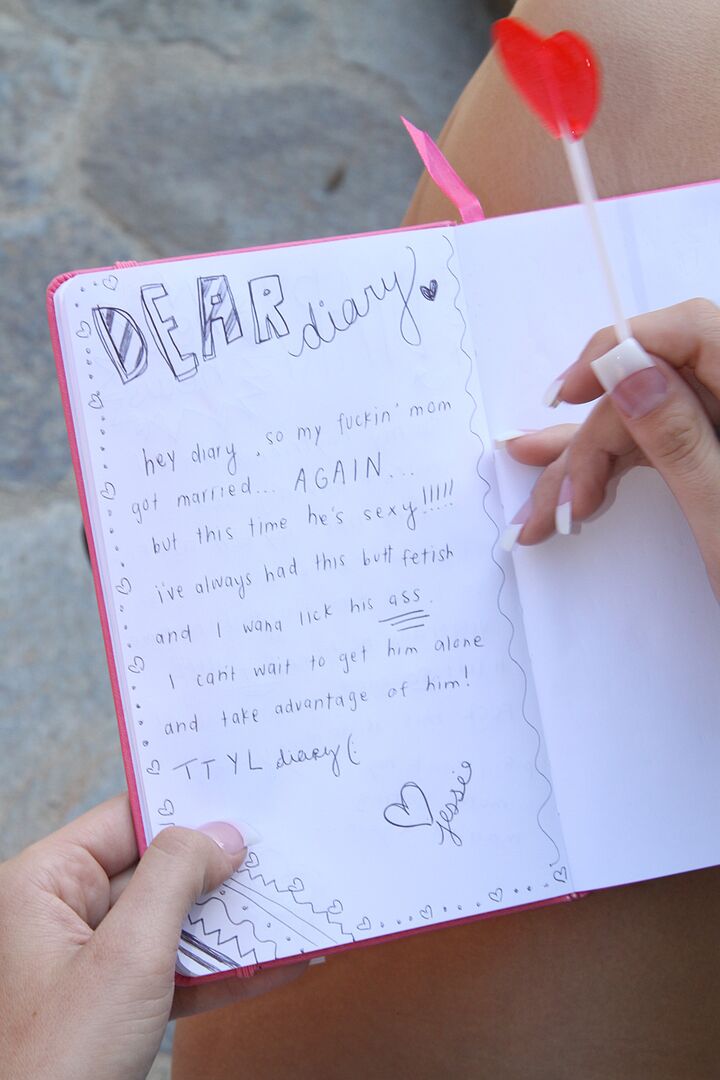 DEAR diary
hey diary, so my fuckin' mom
got married... AGAIN...
but this time he's sexy!!!!!
i've always had this butt fetish
and I wana lick his ass.
I can't wait to get him alone
and take advantage of him!
TTYL diary(:
Jessie